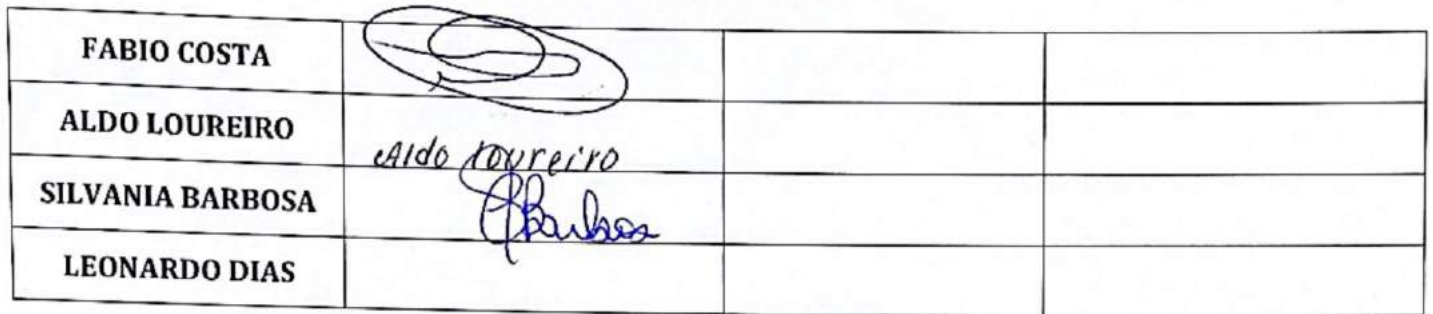 FABIO COSTA
ALDO LOUREIRO Aldo Loureiro
SILVANIA BARBOSA SBarbosa
LEONARDO DIAS